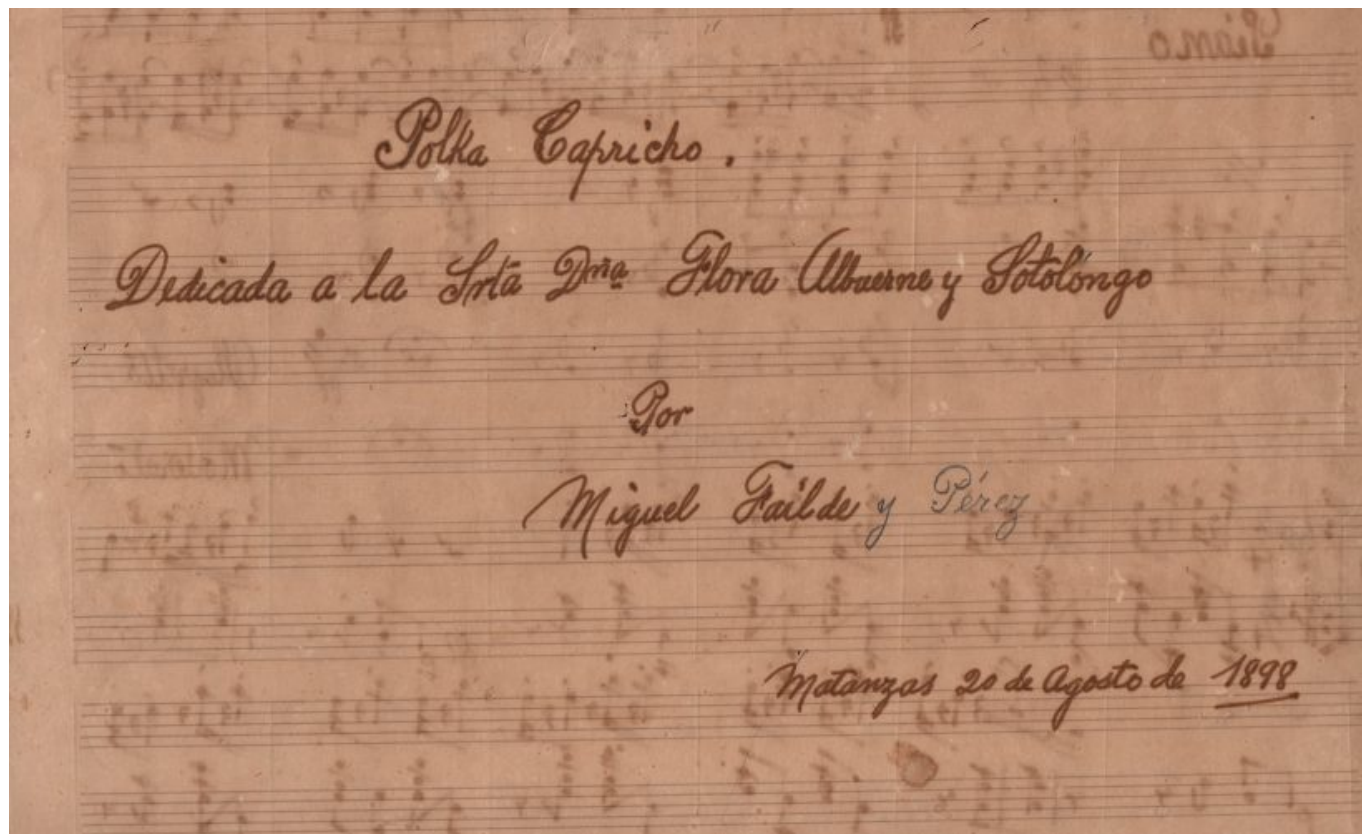 Piano
Polka Capricho.
Dedicada a la Srta Dña Flora Albuerne y Sotolongo
Por
Miguel Failde y Pérez
Matanzas 20 de Agosto de 1898